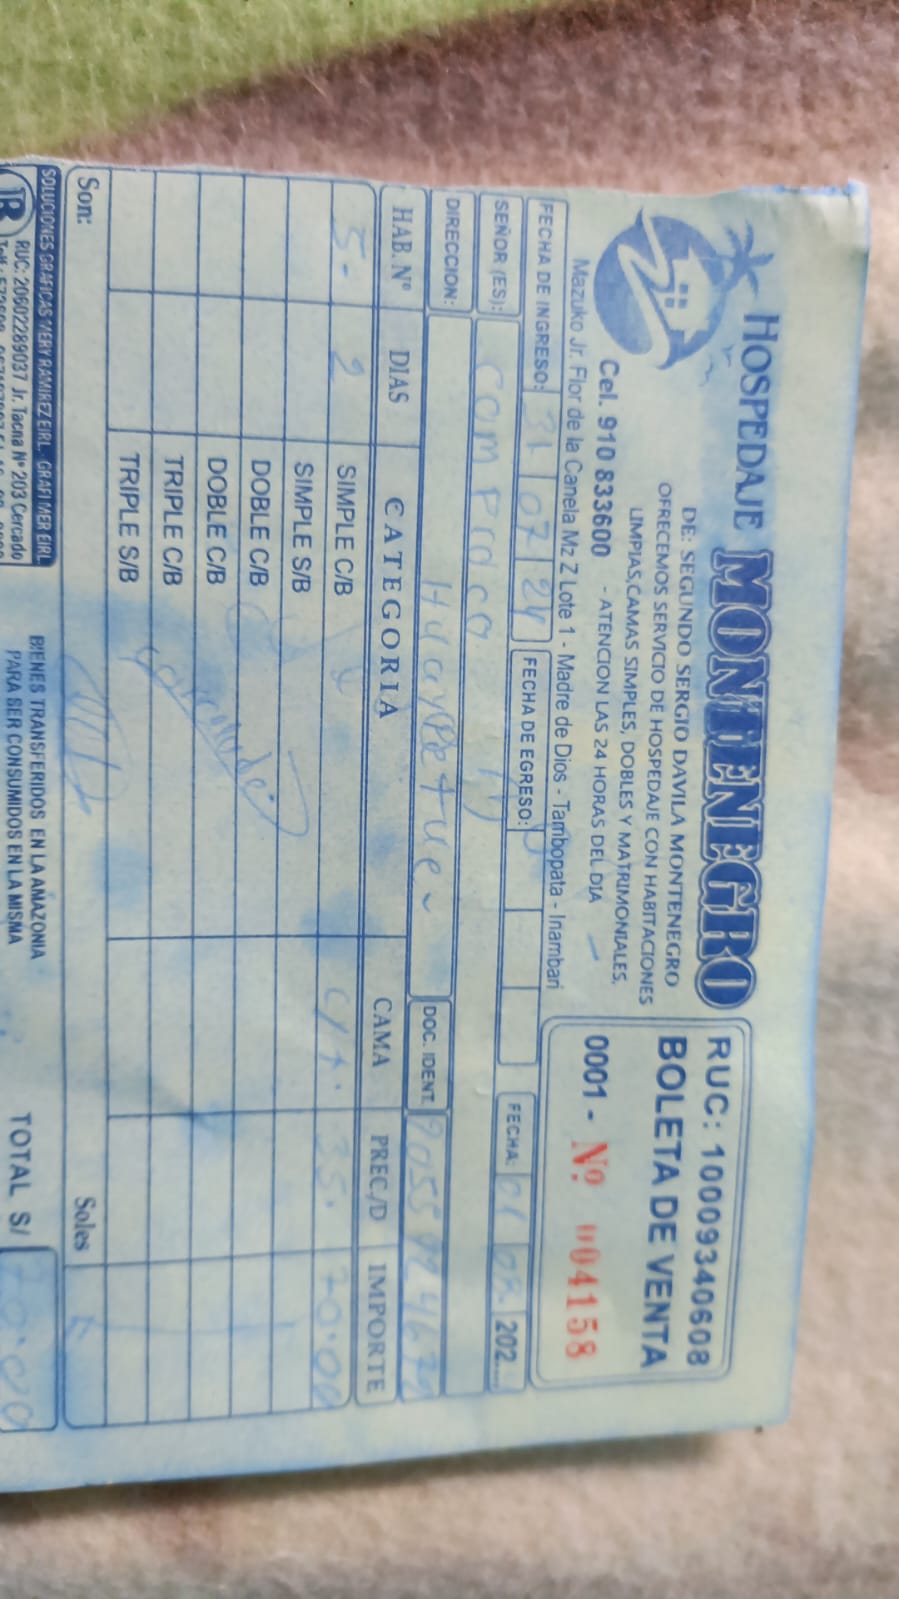 HOSPEDAJE MONTENEGRO
DE: SEGUNDO SERGIO DAVILA MONTENEGRO
OFRECEMOS SERVICIO DE HOSPEDAJE CON HABITACIONES
LIMPIAS,CAMAS SIMPLES, DOBLES Y MATRIMONIALES,
Cel. 910 833600 - ATENCION LAS 24 HORAS DEL DIA
Mazuko Jr. Flor de la Canela Mz Z Lote 1 - Madre de Dios - Tambopata - Inambari
RUC: 10009340608
BOLETA DE VENTA
0001 - Nº 004158
FECHA DE INGRESO: 31 07 24 FECHA DE EGRESO: FECHA: 01 08 202....
SEÑOR (ES):
DIRECCION: Huaypetue DOC. IDENT.
HAB. Nº DIAS CATEGORIA CAMA PREC./D IMPORTE
5- 2 SIMPLE C/B 35. 70.00
SIMPLE S/B
DOBLE C/B
DOBLE C/B
TRIPLE C/B
TRIPLE S/B
cancelado
Son: Soles
SOLUCIONES GRAFICAS MERY RAMIREZ EIRL. GRAFI MER EIRL
RUC: 20602289037 Jr. Tacna Nº 203 Cercado
BIENES TRANSFERIDOS EN LA AMAZONIA
PARA SER CONSUMIDOS EN LA MISMA
TOTAL S/ 70.00